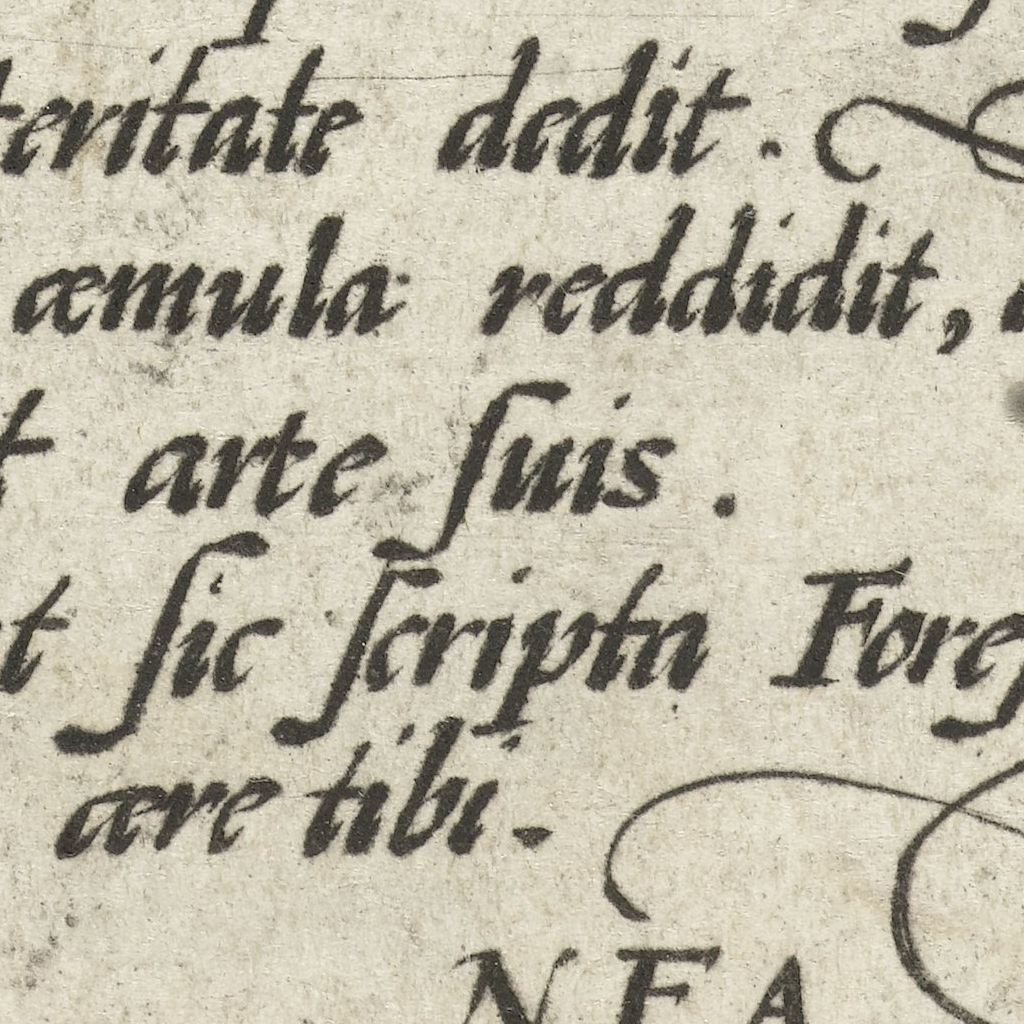 teritate dedit.
æmula reddidit,
t arte ſuis.
t ſic ſcripta Foreſ
ære tibi.
N F A